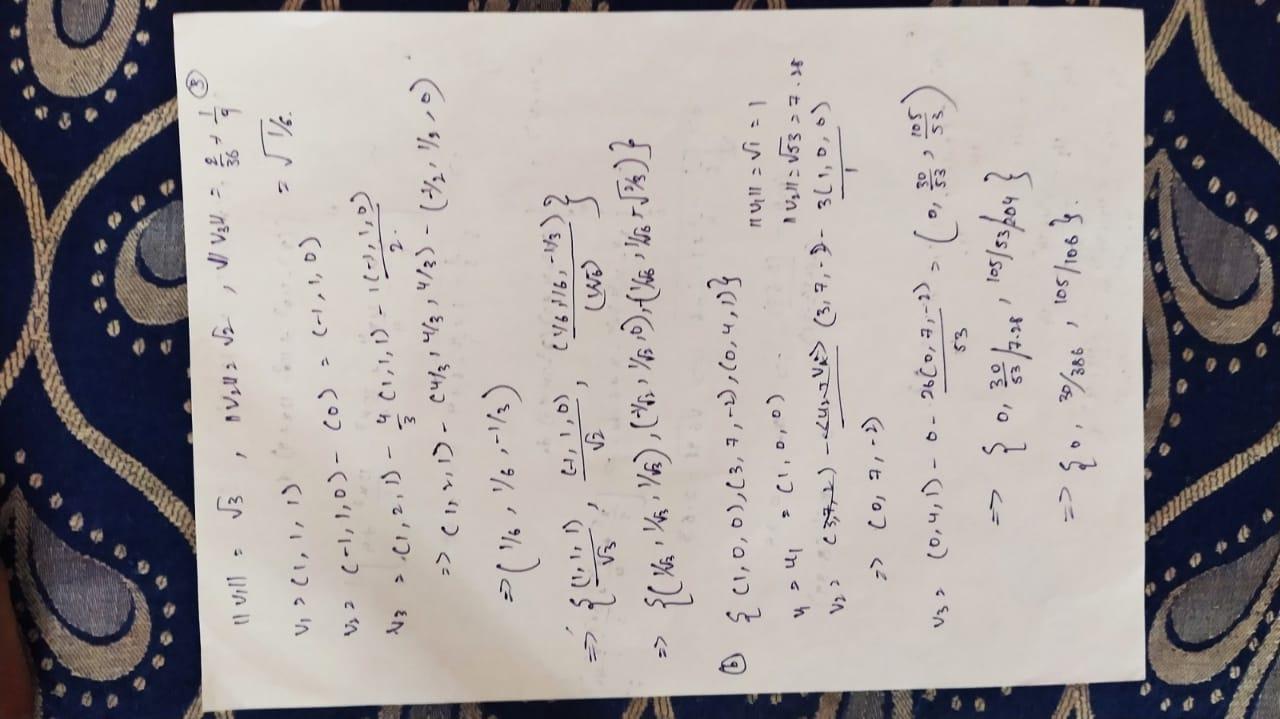 ||v₁|| = √3 , ||v₂|| = √2 , ||v₃|| = 2/36 + 1/9 ③
= √1/6.
v₁ = (1, 1, 1)
v₂ = (-1, 1, 0) - (0) = (-1, 1, 0)
v₃ = (1, 2, 1) - 4/3 (1, 1, 1) - 1(-1, 1, 0)/2.
=> (1, 2, 1) - (4/3, 4/3, 4/3) - (-1/2, 1/2, 0)
=> (1/6, 1/6, -1/3)
=> { (1, 1, 1)/√3 , (-1, 1, 0)/√2 , (1/6, 1/6, -1/3)/(1/√6) }
=> {(1/√3, 1/√3, 1/√3), (-1/√2, 1/√2, 0), (1/√6, 1/√6, -√2/3)}
(b) { (1, 0, 0), (3, 7, -2), (0, 4, 1)}
v₁ = u₁ = (1, 0, 0) ||v₁|| = √1 = 1
v₂ = (3, 7, -2) - 3(1, 0, 0)/1 ||v₂|| = √53 = 7.28
=> (0, 7, -2)
v₃ = (0, 4, 1) - 0 - 26(0, 7, -2)/53 = (0, 30/53, 105/53)
=> { 0, 30/53/7.28, 105/53/204 }
=> { 0, 30/386, 105/106 }.